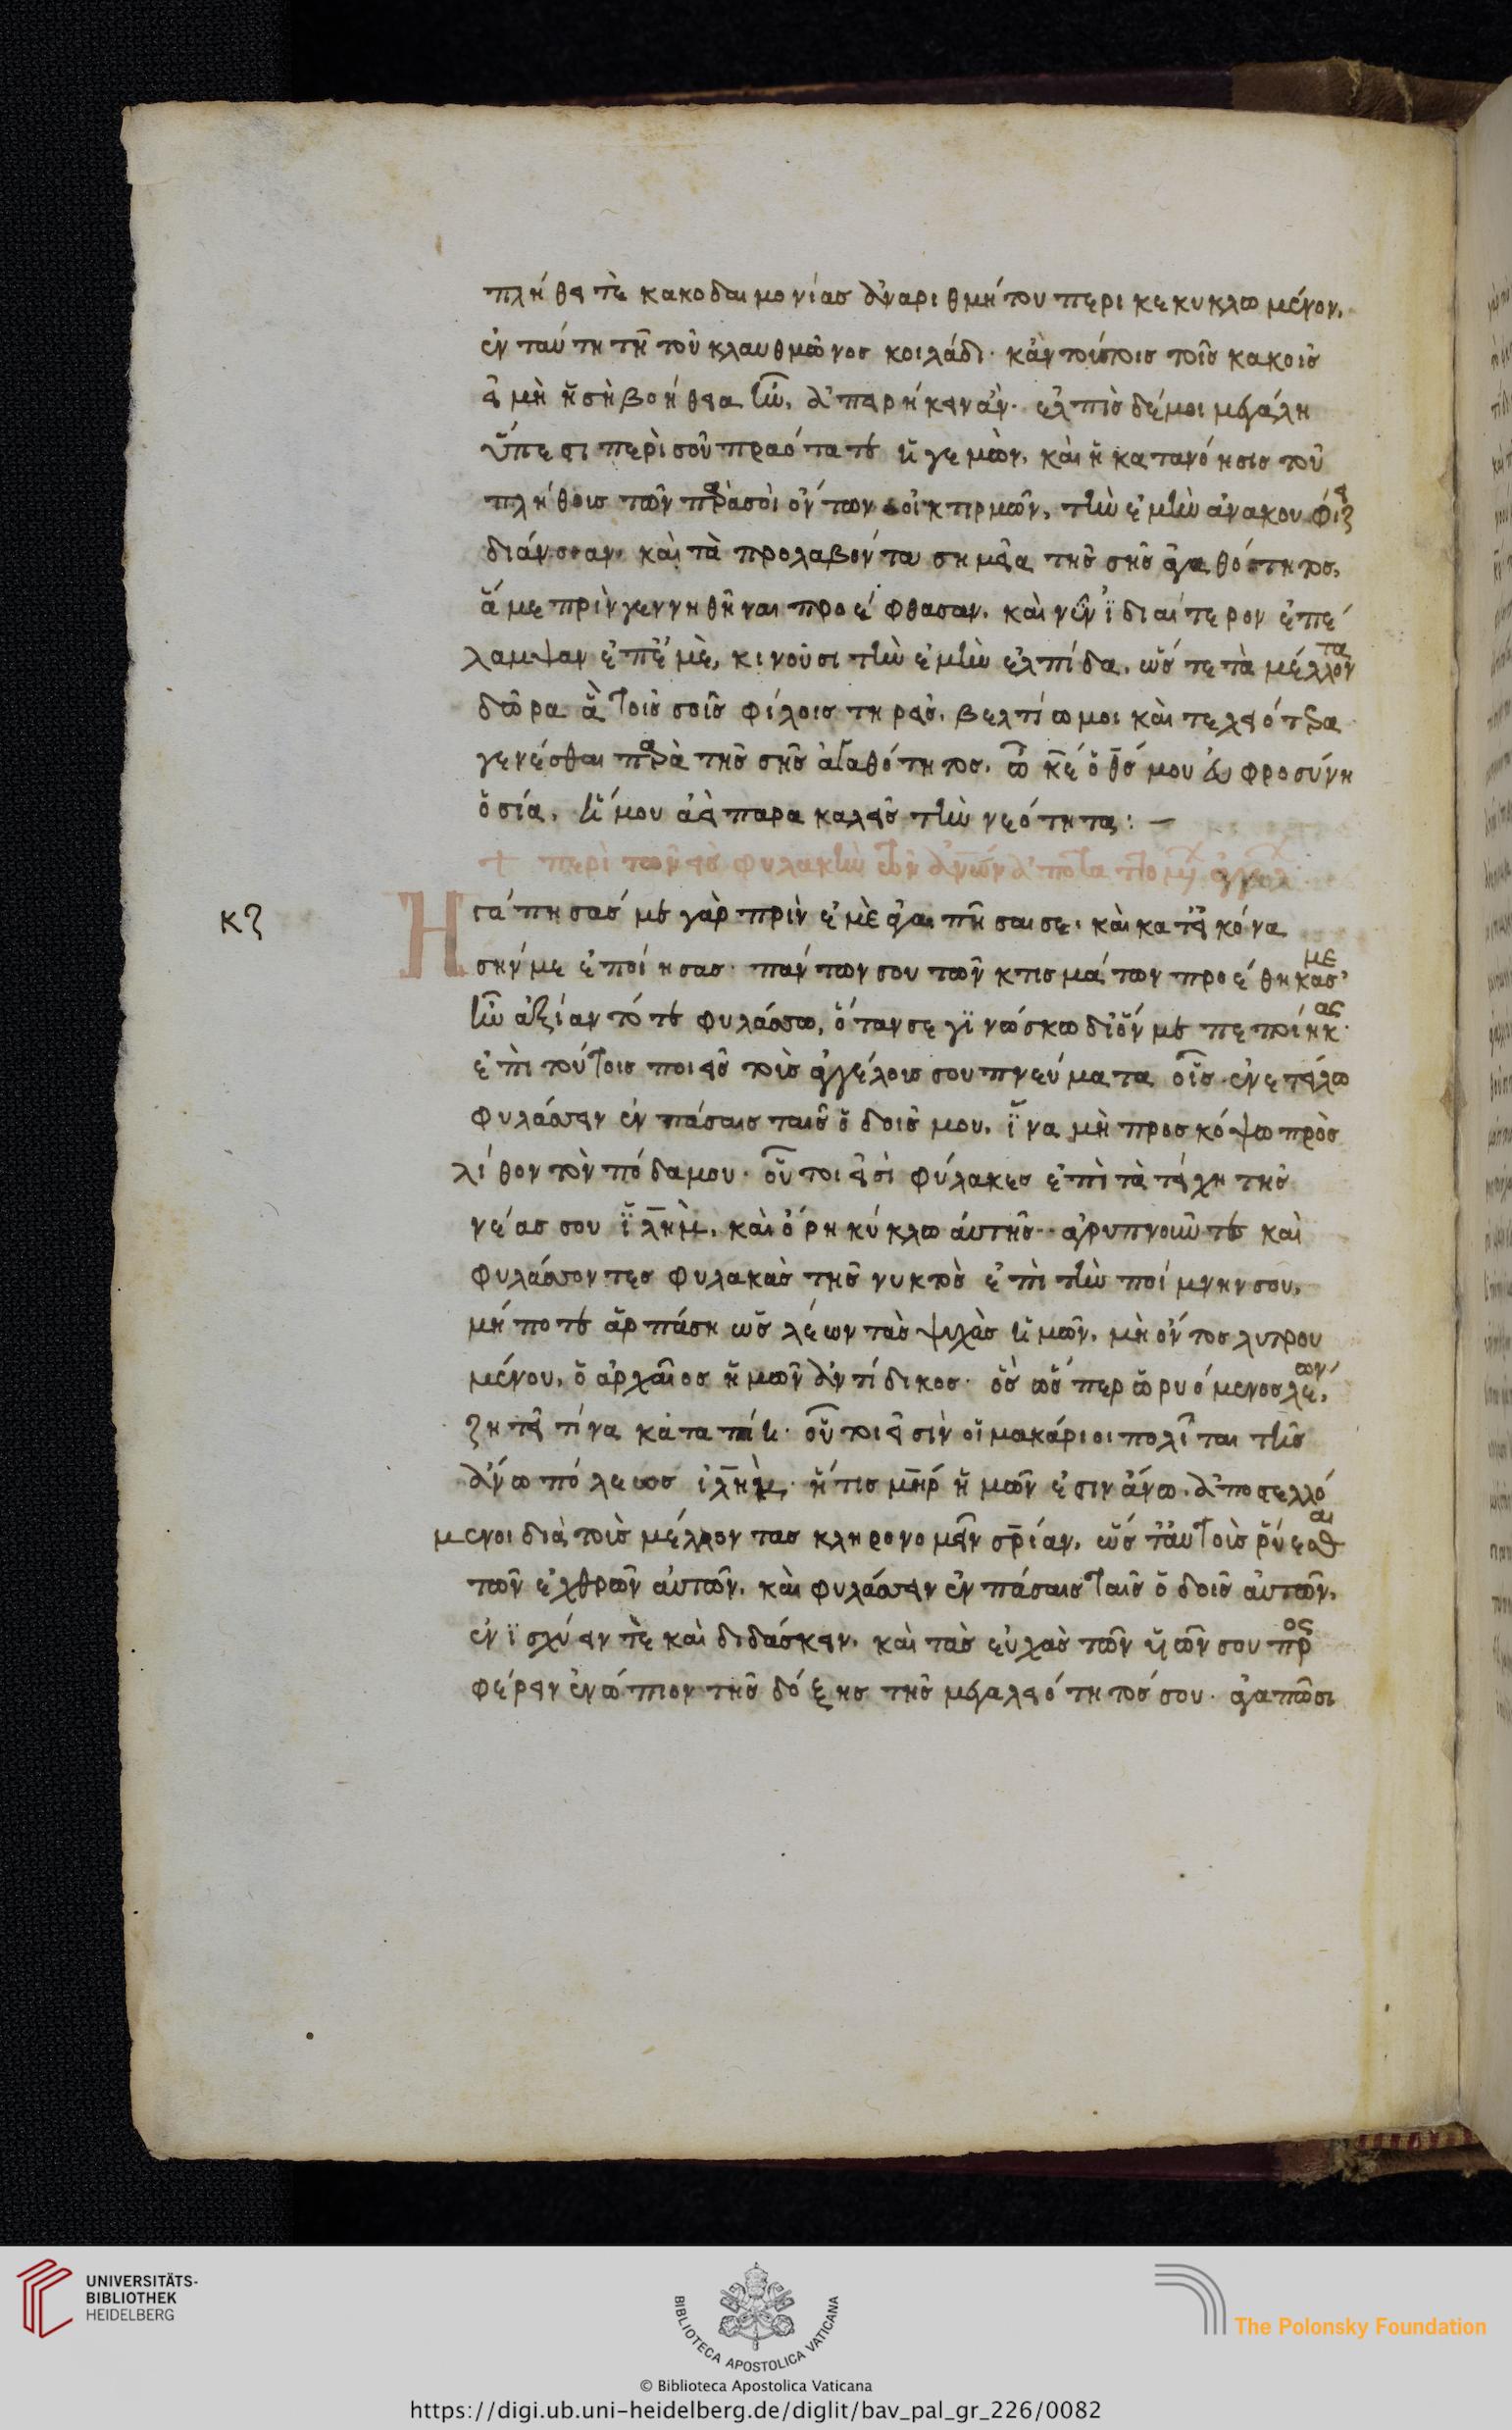 πλήθει τὲ κακοδαιμονίας ἀναριθμήτου περικεκυκλωμένον,
ἐν ταύτη τῆ τοῦ κλαυθμῶνος κοιλάδι· κἀν τούτοις τοῖς κακοῖς
εἰ μὴ ἡ σὴ βοήθεια ἦν, ἀπειρήκειν ἄν· ἐλπὶς δέ μοι μεγάλη
ὕπεστι περὶ σοῦ πραότατε ἡγεμὼν, καὶ ἡ κατανόησις τοῦ
πλήθους τῶν παρὰ σοὶ ὄντων οἰκτιρμῶν, τὴν ἐμὴν ἀνακουφίζει
διάνοιαν· καὶ τὰ προλαβόντα σημεῖα τῆς σῆς ἀγαθότητος,
ἅ με πρὶν γεννηθῆναι προέφθασαν, καὶ νῦν ἰδιαίτερον ἐπέ
λαμψαν ἐπ' ἐμὲ, κινοῦσι τὴν ἐμὴν ἐλπίδα, ὥστε τὰ μέλλοντα
δῶρα ἃ τοῖς σοῖς φίλοις τηρεῖς, βελτίω μοι καὶ τελειότερα
γενέσθαι παρὰ τῆς σῆς ἀγαθότητος, ὦ κ̅ε̅ ὁ θ̅ς̅ μου εὐφροσύνη
ὁσία, ἥ μου ἀεὶ παρακαλεῖς τὴν νεότητα: —
+ περὶ τῶν εἰς φυλακὴν τῶν ἀν̅ων ἀπο
κζ
Ηγάπησας με γὰρ πρὶν ἐμὲ ἀγαπῆσαι σε, καὶ κατ' εἰκόνα
σήν με ἐποίησας· πάντων σου τῶν κτισμάτων προέθηκάς με
ἣν ἀξίαν τότε φυλάσσω, ὅταν σε γινώσκω δι' ὅν με πεποίηκας·
ἐπὶ τούτοις ποιεῖς τοὺς ἀγγέλους σου πνεύματα οἷς ἐνετείλω
φυλάσσειν ἐν πάσαις ταῖς ὁδοῖς μου, ἵνα μὴ προσκόψω πρὸς
λίθον τὸν πόδα μου· οὗτοι εἰσὶ φύλακες ἐπὶ τὰ τείχη τῆς
νέας σου ἰλ̅ημ, καὶ ὄρη κύκλω αὐτῆς· ἀγρυπνοῦντες καὶ
φυλάσσοντες φυλακὰς τῆς νυκτὸς ἐπὶ τὴν ποίμνην σου,
μήποτε ἁρπάση ὡς λέων τὰς ψυχὰς ἡμῶν, μὴ ὄντος λυτρου
μένου, ὁ ἀρχαῖος ἡμῶν ἀντίδικος· ὃς ὥσπερ ὠρυόμενος λέων,
ζητεῖ τίνα καταπίη· οὗτοι εἰσὶν οἱ μακάριοι πολῖται τῆς
ἄνω πόλεως ἰλ̅ημ, ἥτις μ̅η̅ρ̅ ἡμῶν ἐστιν ἄνω, ἀποστελλό
μενοι διὰ τοὺς μέλλοντας κληρονομεῖν σ̅ρ̅ίαν, ὥστ' αὐτοὺς ῥύεσθαι
τῶν ἐχθρῶν αὐτῶν, καὶ φυλάσσειν ἐν πάσαις ταῖς ὁδοῖς αὐτῶν,
ἐνισχύειν τὲ καὶ διδάσκειν, καὶ τὰς εὐχὰς τῶν υἱῶν σου προς
φέρειν ἐνώπιον τῆς δόξης τῆς μεγαλειότητός σου· ἀγαπῶσι
UNIVERSITÄTS-
BIBLIOTHEK
HEIDELBERG
BIBLIOTECA APOSTOLICA VATICANA
The Polonsky Foundation
© Biblioteca Apostolica Vaticana
https://digi.ub.uni-heidelberg.de/diglit/bav_pal_gr_226/0082